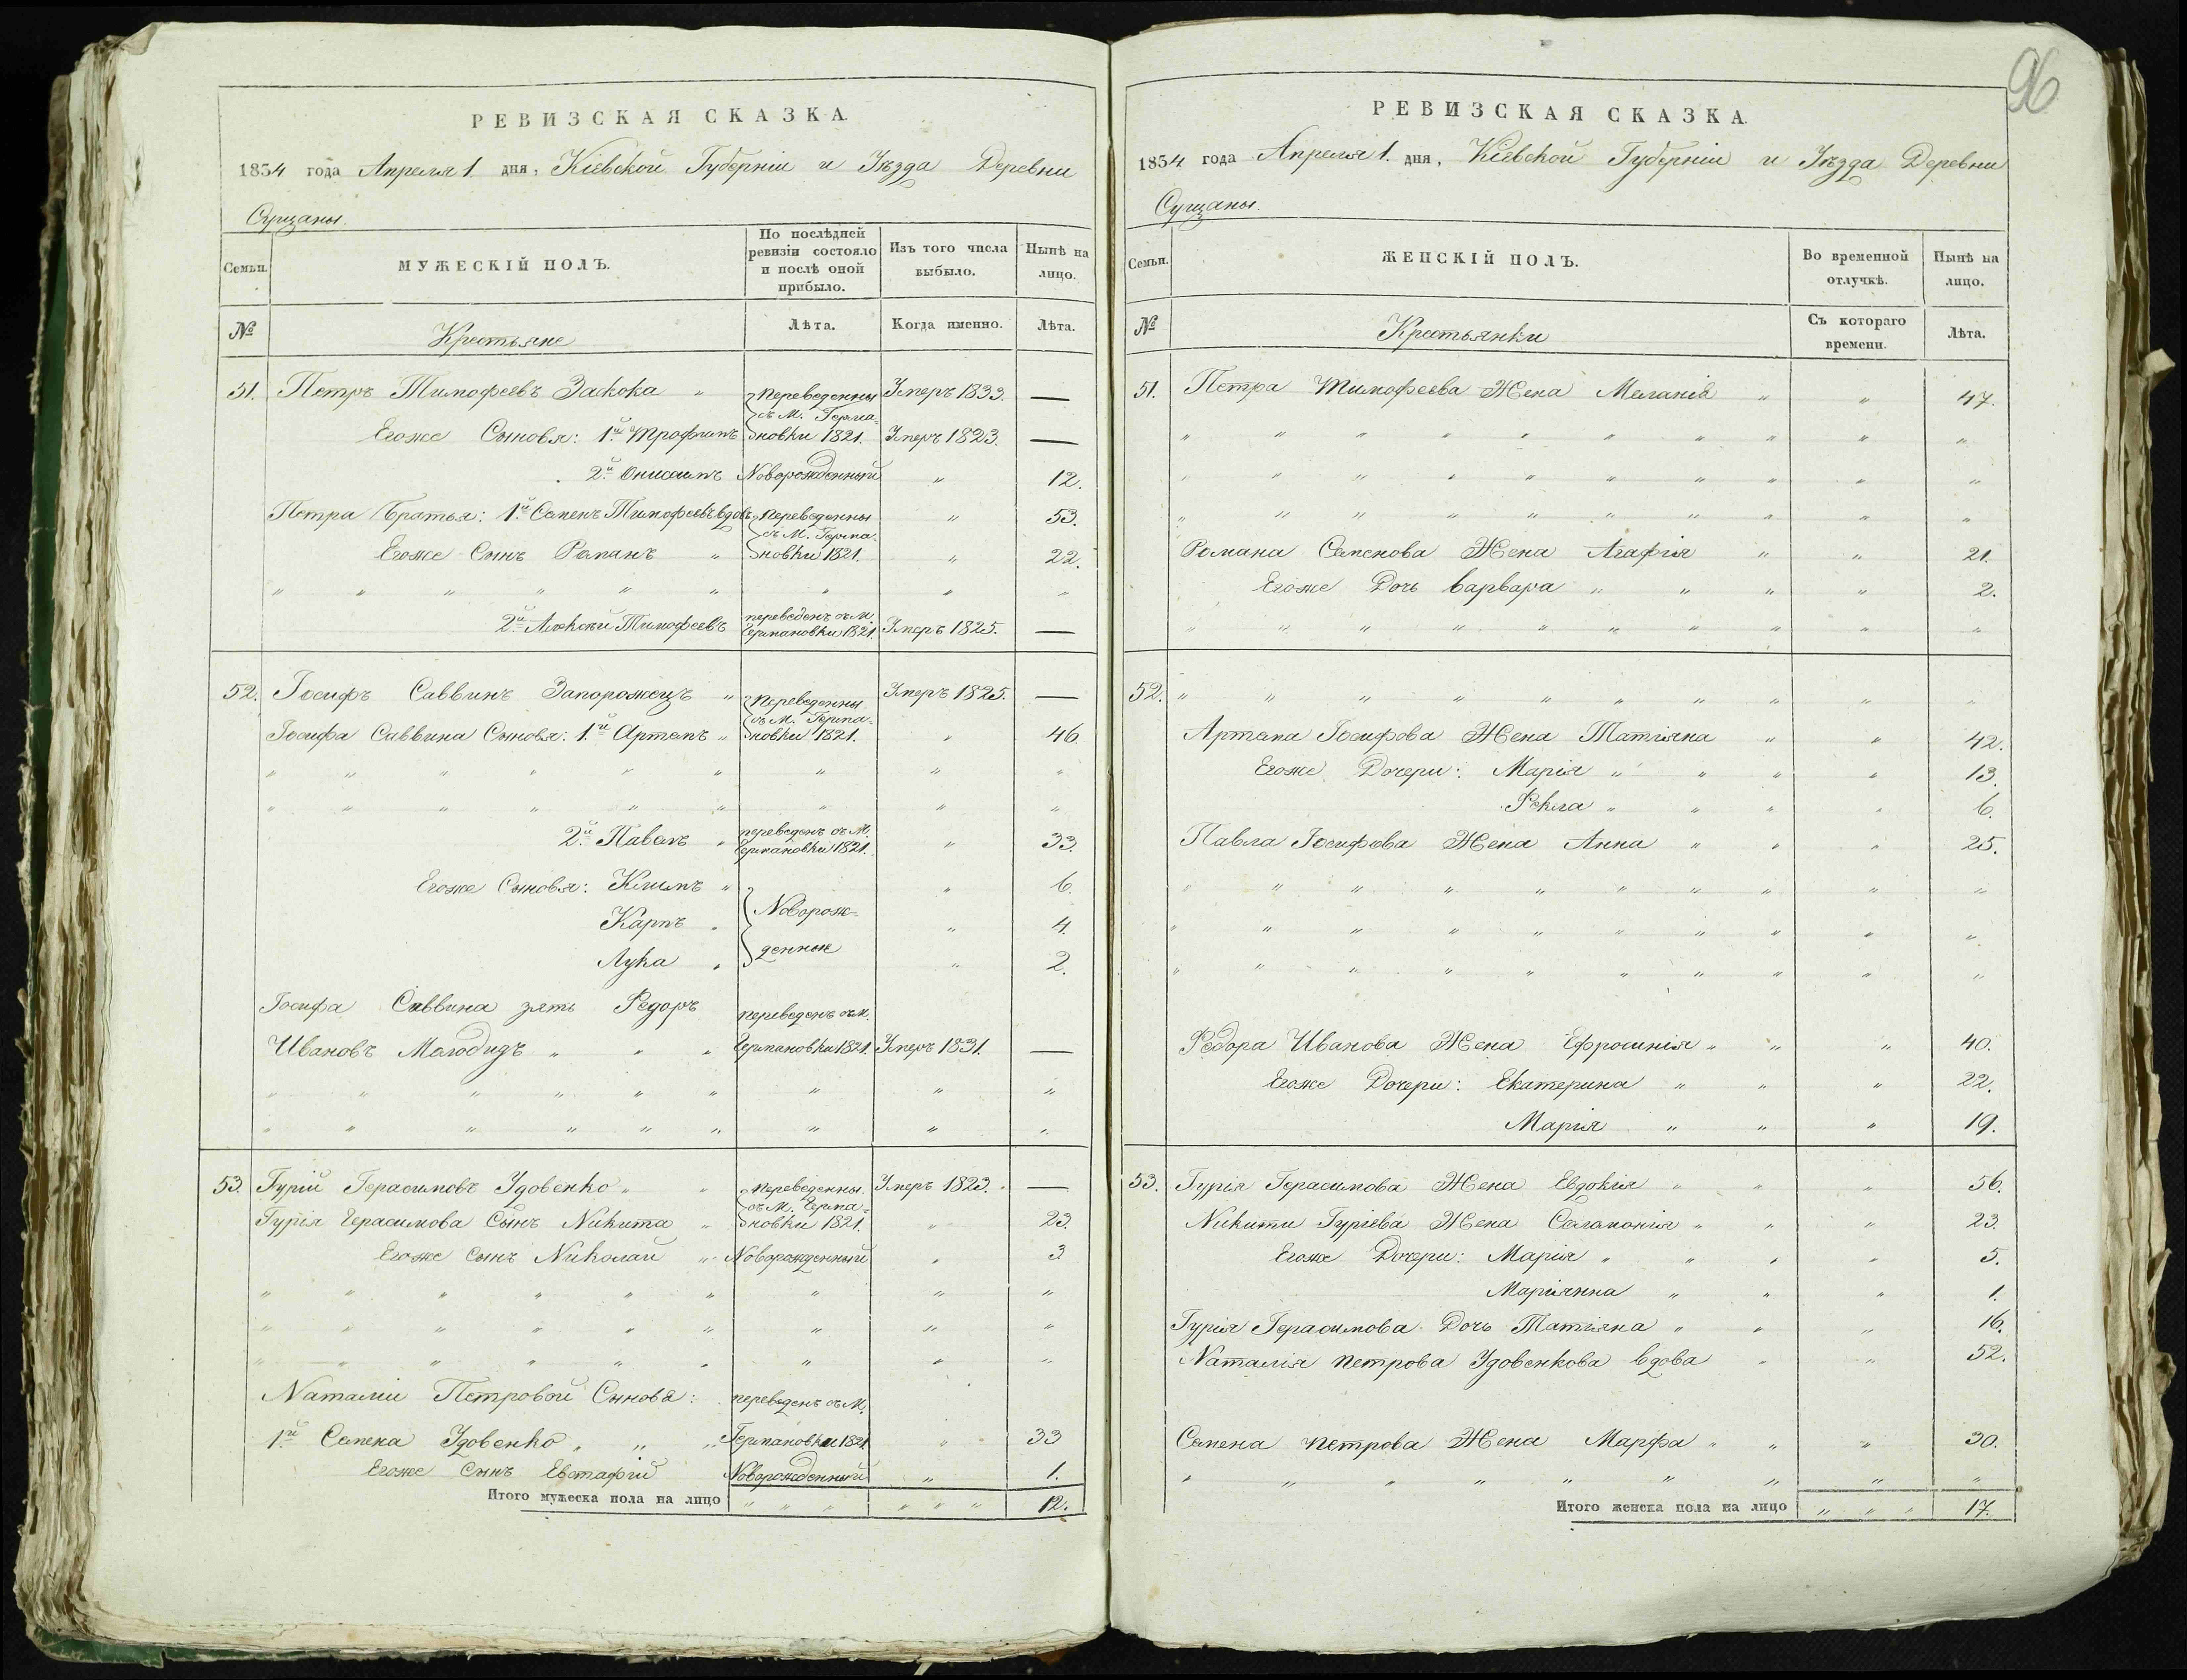 РЕВИЗСКАЯ СКАЗКА.
1834 года Апреля 1 дня, Кіевской Губерніи и Уѣзда Деревни
Сущаны.
Семьи.
МУЖЕСКІЙ ПОЛЪ.
По послѣдней ревизіи состояло и послѣ оной прибыло.
Изъ того числа выбыло.
Нынѣ на лицо.
№
Крестьяне
Лѣта.
Когда именно.
Лѣта.
51. Петръ Тимофеевъ Заскока " Переведенны Умеръ 1833. —
съ М. Герма-
Егоже Сыновья: 1й Трофимъ новки 1821. Умеръ 1823. —
2й Онисимъ Новорожденный " 12.
Петра Братья: 1й Семенъ Тимофеевъ вдов. Переведенны " 53.
съ М. Герма-
Егоже Сынъ Романъ " новки 1821. " 22.
" " " " " " " " "
2й Алексѣй Тимофеевъ переведенъ съ М. Германовки 1821. Умеръ 1825. —
52. Іосифъ Саввинъ Запорожецъ " Переведенны Умеръ 1825. —
съ М. Герма-
Іосифа Саввина Сыновья: 1й Артемъ " новки 1821. " 46.
" " " " " " " " "
" " " " " " " " "
2й Павелъ " переведенъ съ М. Германовки 1821. " 33.
Егоже Сыновья: Климъ " " 6.
Карпъ " Новорож- " 4.
Лука " денные " 2.
Іосифа Саввина зять Федоръ переведенъ съ М.
Ивановъ Молодидъ " " " Германовки 1821. Умеръ 1831. —
" " " " " " " " "
" " " " " " " " "
53. Гурій Герасимовъ Удовенко " " Переведенны. Умеръ 1823. —
съ М. Герма-
Гурія Герасимова Сынъ Никита " новки 1821. " 23.
Егоже Сынъ Николай " Новорожденный " 3
" " " " " " " " "
" " " " " " " " "
" " " " " " " " "
Наталіи Петровой Сыновья: переведенъ съ М.
1й Семена Удовенко " " " Германовки 1821 " 33
Егоже Сынъ Евстафій Новорожденный " 1.
Итого мужеска пола на лицо " " " " " " 12.
96
РЕВИЗСКАЯ СКАЗКА.
1834 года Апреля 1. дня, Кіевской Губерніи и Уѣзда Деревни
Сущаны.
Семьи.
ЖЕНСКІЙ ПОЛЪ.
Во временной отлучкѣ.
Нынѣ на лицо.
№
Крестьянки
Съ котораго времени.
Лѣта.
51. Петра Тимофеева Жена Меланія " " 47.
" " " " " " " " " "
" " " " " " " " " "
" " " " " " " " " "
Романа Семенова Жена Агафія " " 21.
Егоже Дочь Варвара " " " " 2.
" " " " " " " " " "
52. " " " " " " " " " "
Артема Іосифова Жена Татіяна " " 42.
Егоже Дочери: Марія " " " " 13.
Фекла " " " " 6.
Павла Іосифова Жена Анна " " " 25.
" " " " " " " " " "
" " " " " " " " " "
" " " " " " " " " "
Федора Иванова Жена Ефросинія " " " 40.
Егоже Дочери: Екатерина " " " 22.
Марія " " " 19.
53. Гурія Герасимова Жена Евдокія " " " 56.
Никиты Гуріева Жена Соломонія " " " 23.
Егоже Дочери: Марія " " " " 5.
Маріянна " " " 1.
Гурія Герасимова Дочь Татіяна " " " 16.
Наталія Петрова Удовенкова вдова " " 52.
Семена Петрова Жена Марфа " " " 30.
" " " " " " " " "
Итого женска пола на лицо " " " 17.